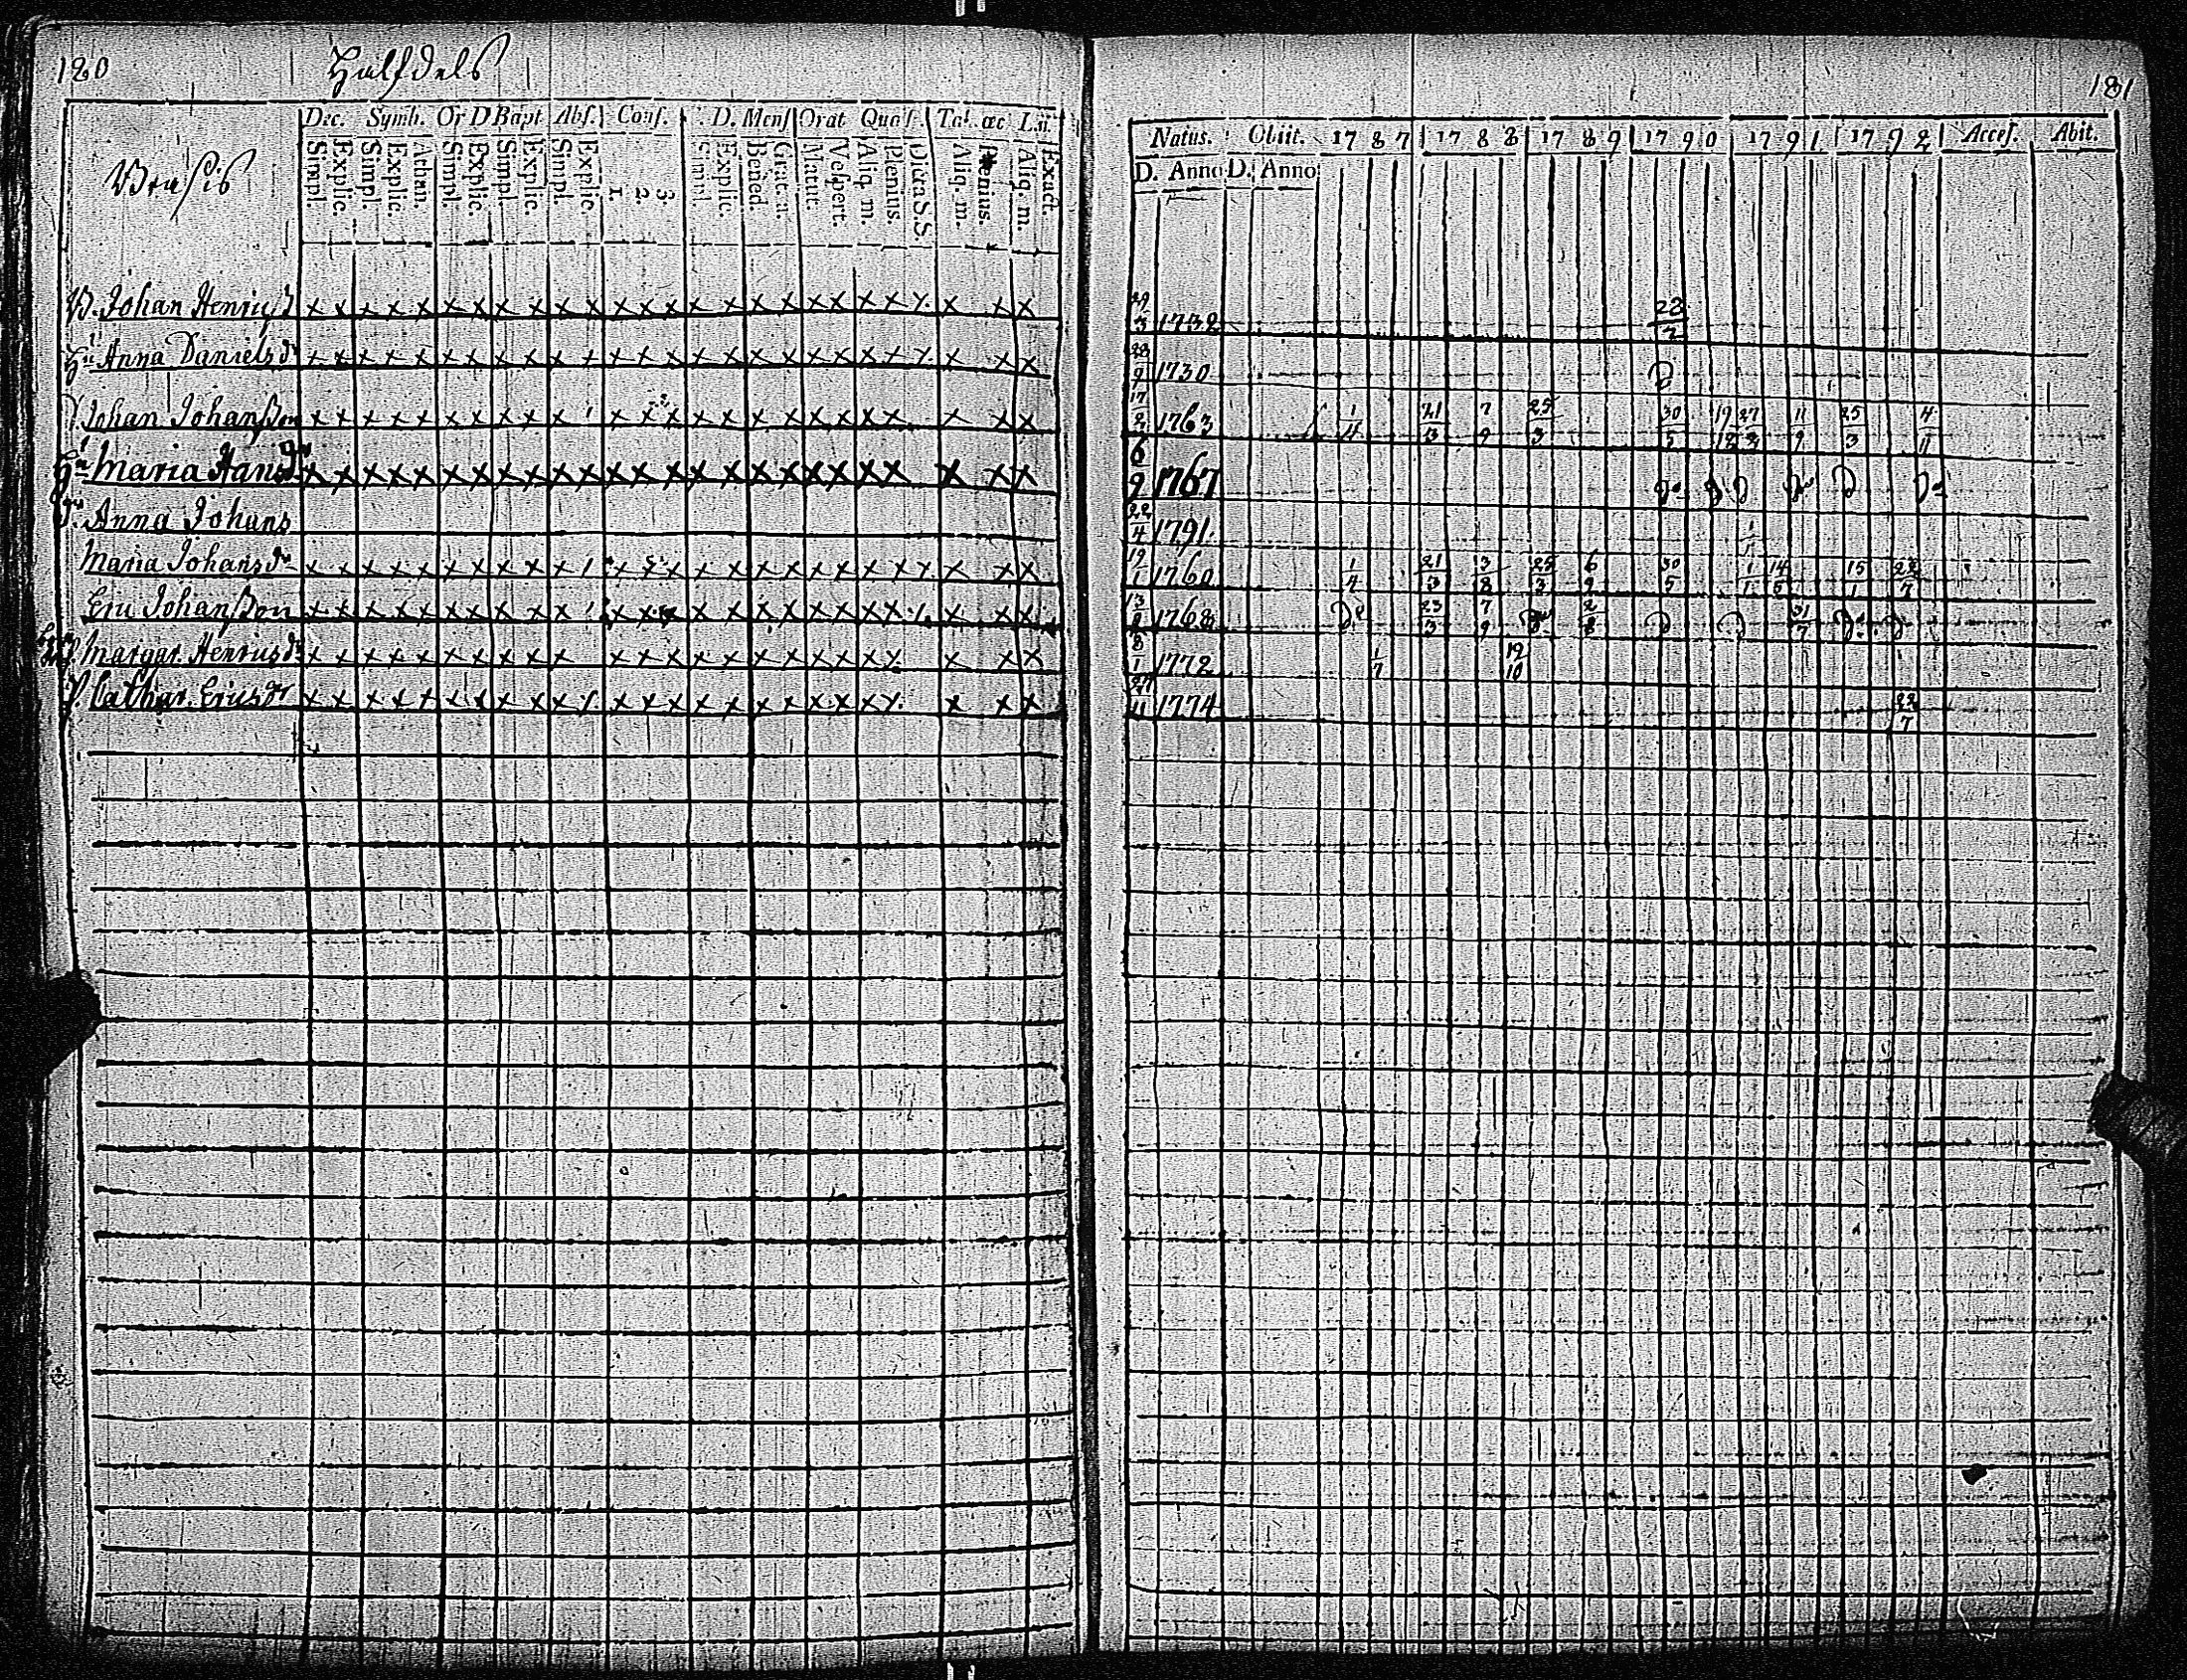 180
Halfdels
181
Dec. Symb. Or D Bapt Abs. Conf. D. Mens Orat Quæs. Tab. œc L.n.
Simpl. Explic. Simpl. Explic. Athan. Simpl. Explic. Simpl. Explic. Simpl. Explic. 1. 2. 3. Simpl. Explic. Bened. Grat. a. Matut. Vespert. Aliq. m. Plenius. Dicta S.S. Aliq. m. Plenius. Aliq. m. Exact.
Natus. Obiit. 1787 1788 1789 1790 1791 1792 Acces. Abit.
D. Anno D. Anno
B. Johan Henriss x x x x x x x x x x x x x x x x x x x x x x x x x x 3 1732 22/2
Hu Anna Daniels dr x x x x x x x x x x x x x x x x x x x x x x x x x x 28/9 1730
Johan Johansson x x x x x x x x x x 1 x x x x x x x x x x x x x x x 17/2 1763 1/4 21/3 7/9 25/3 30/5 19/12 27/2 11/9 25/3 4/11
Hu Maria Hans dr x x x x x x x x x x x x x x x x x x x x x x x x x x 6/9 1767
Dr Anna Johans 22/4 1791
Maria Johans dr x x x x x x x x x x 1 x x x x x x x x x x x x x x x 19/1 1760 1/4 21/3 3/8 25/3 6/9 30/5 1/1 14/5 15/1 22/7
Eric Johansson x x x x x x x x x x 1 x x x x x x x x x x x x x x 13/8 1768 23/3 7/9 2/8 31/7
Margar. Henrics dr x x x x x x x x x x x x x x x x x x x x x x x x 8/1 1772 1/7 19/10
P. Cathar. Erics dr x x x x x x x x x x x x x x x x x x x x x x x x x 27/11 1774 22/7